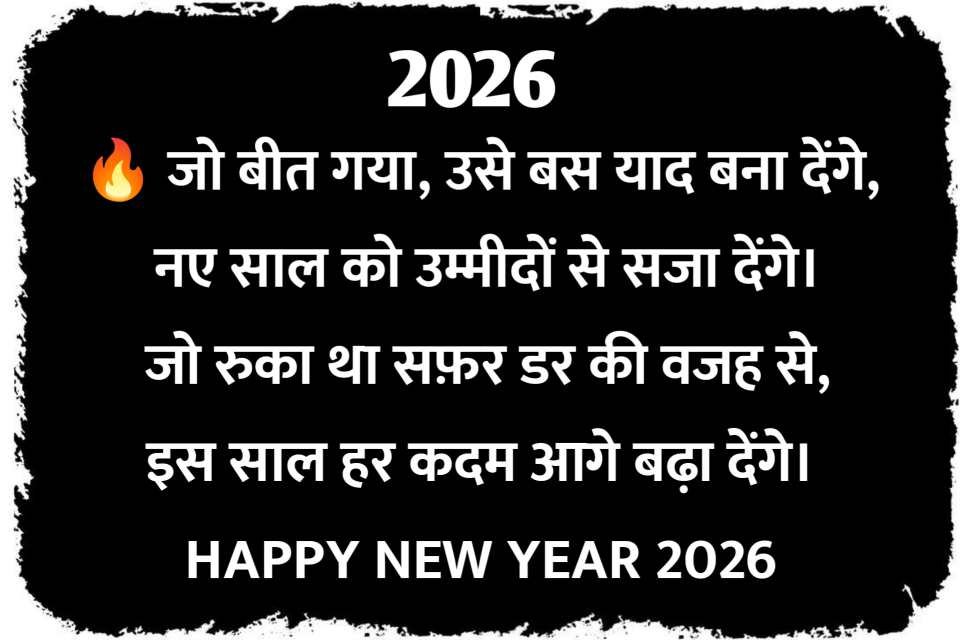 2026
🔥 जो बीत गया, उसे बस याद बना देंगे,
नए साल को उम्मीदों से सजा देंगे।
जो रुका था सफ़र डर की वजह से,
इस साल हर कदम आगे बढ़ा देंगे।
HAPPY NEW YEAR 2026